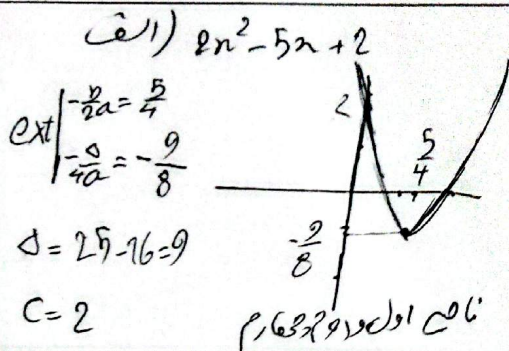 الف) 2x² - 5x + 2
ext | -b/2a = 5/4
-Δ/4a = -9/8
Δ = 25-16=9
C = 2
2
5/4
-9/8
ناحیه اول و دوم و چهارم